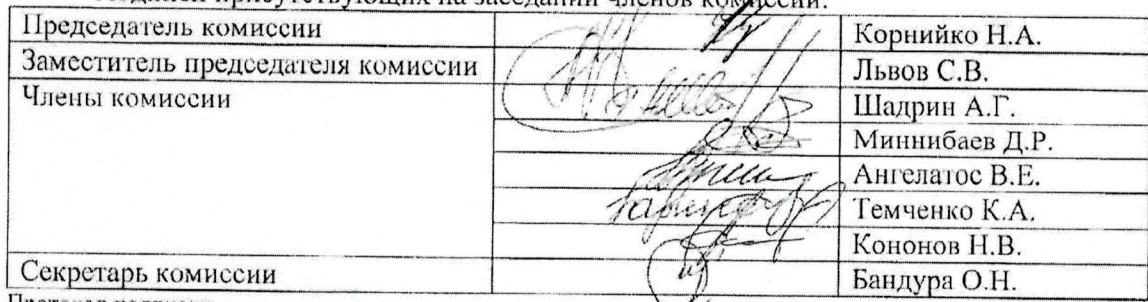 присутствующих на заседании членов комиссии:
Председатель комиссии Корнийко Н.А.
Заместитель председателя комиссии Львов С.В.
Члены комиссии Шадрин А.Г.
Миннибаев Д.Р.
Ангелатос В.Е.
Темченко К.А.
Кононов Н.В.
Секретарь комиссии Бандура О.Н.